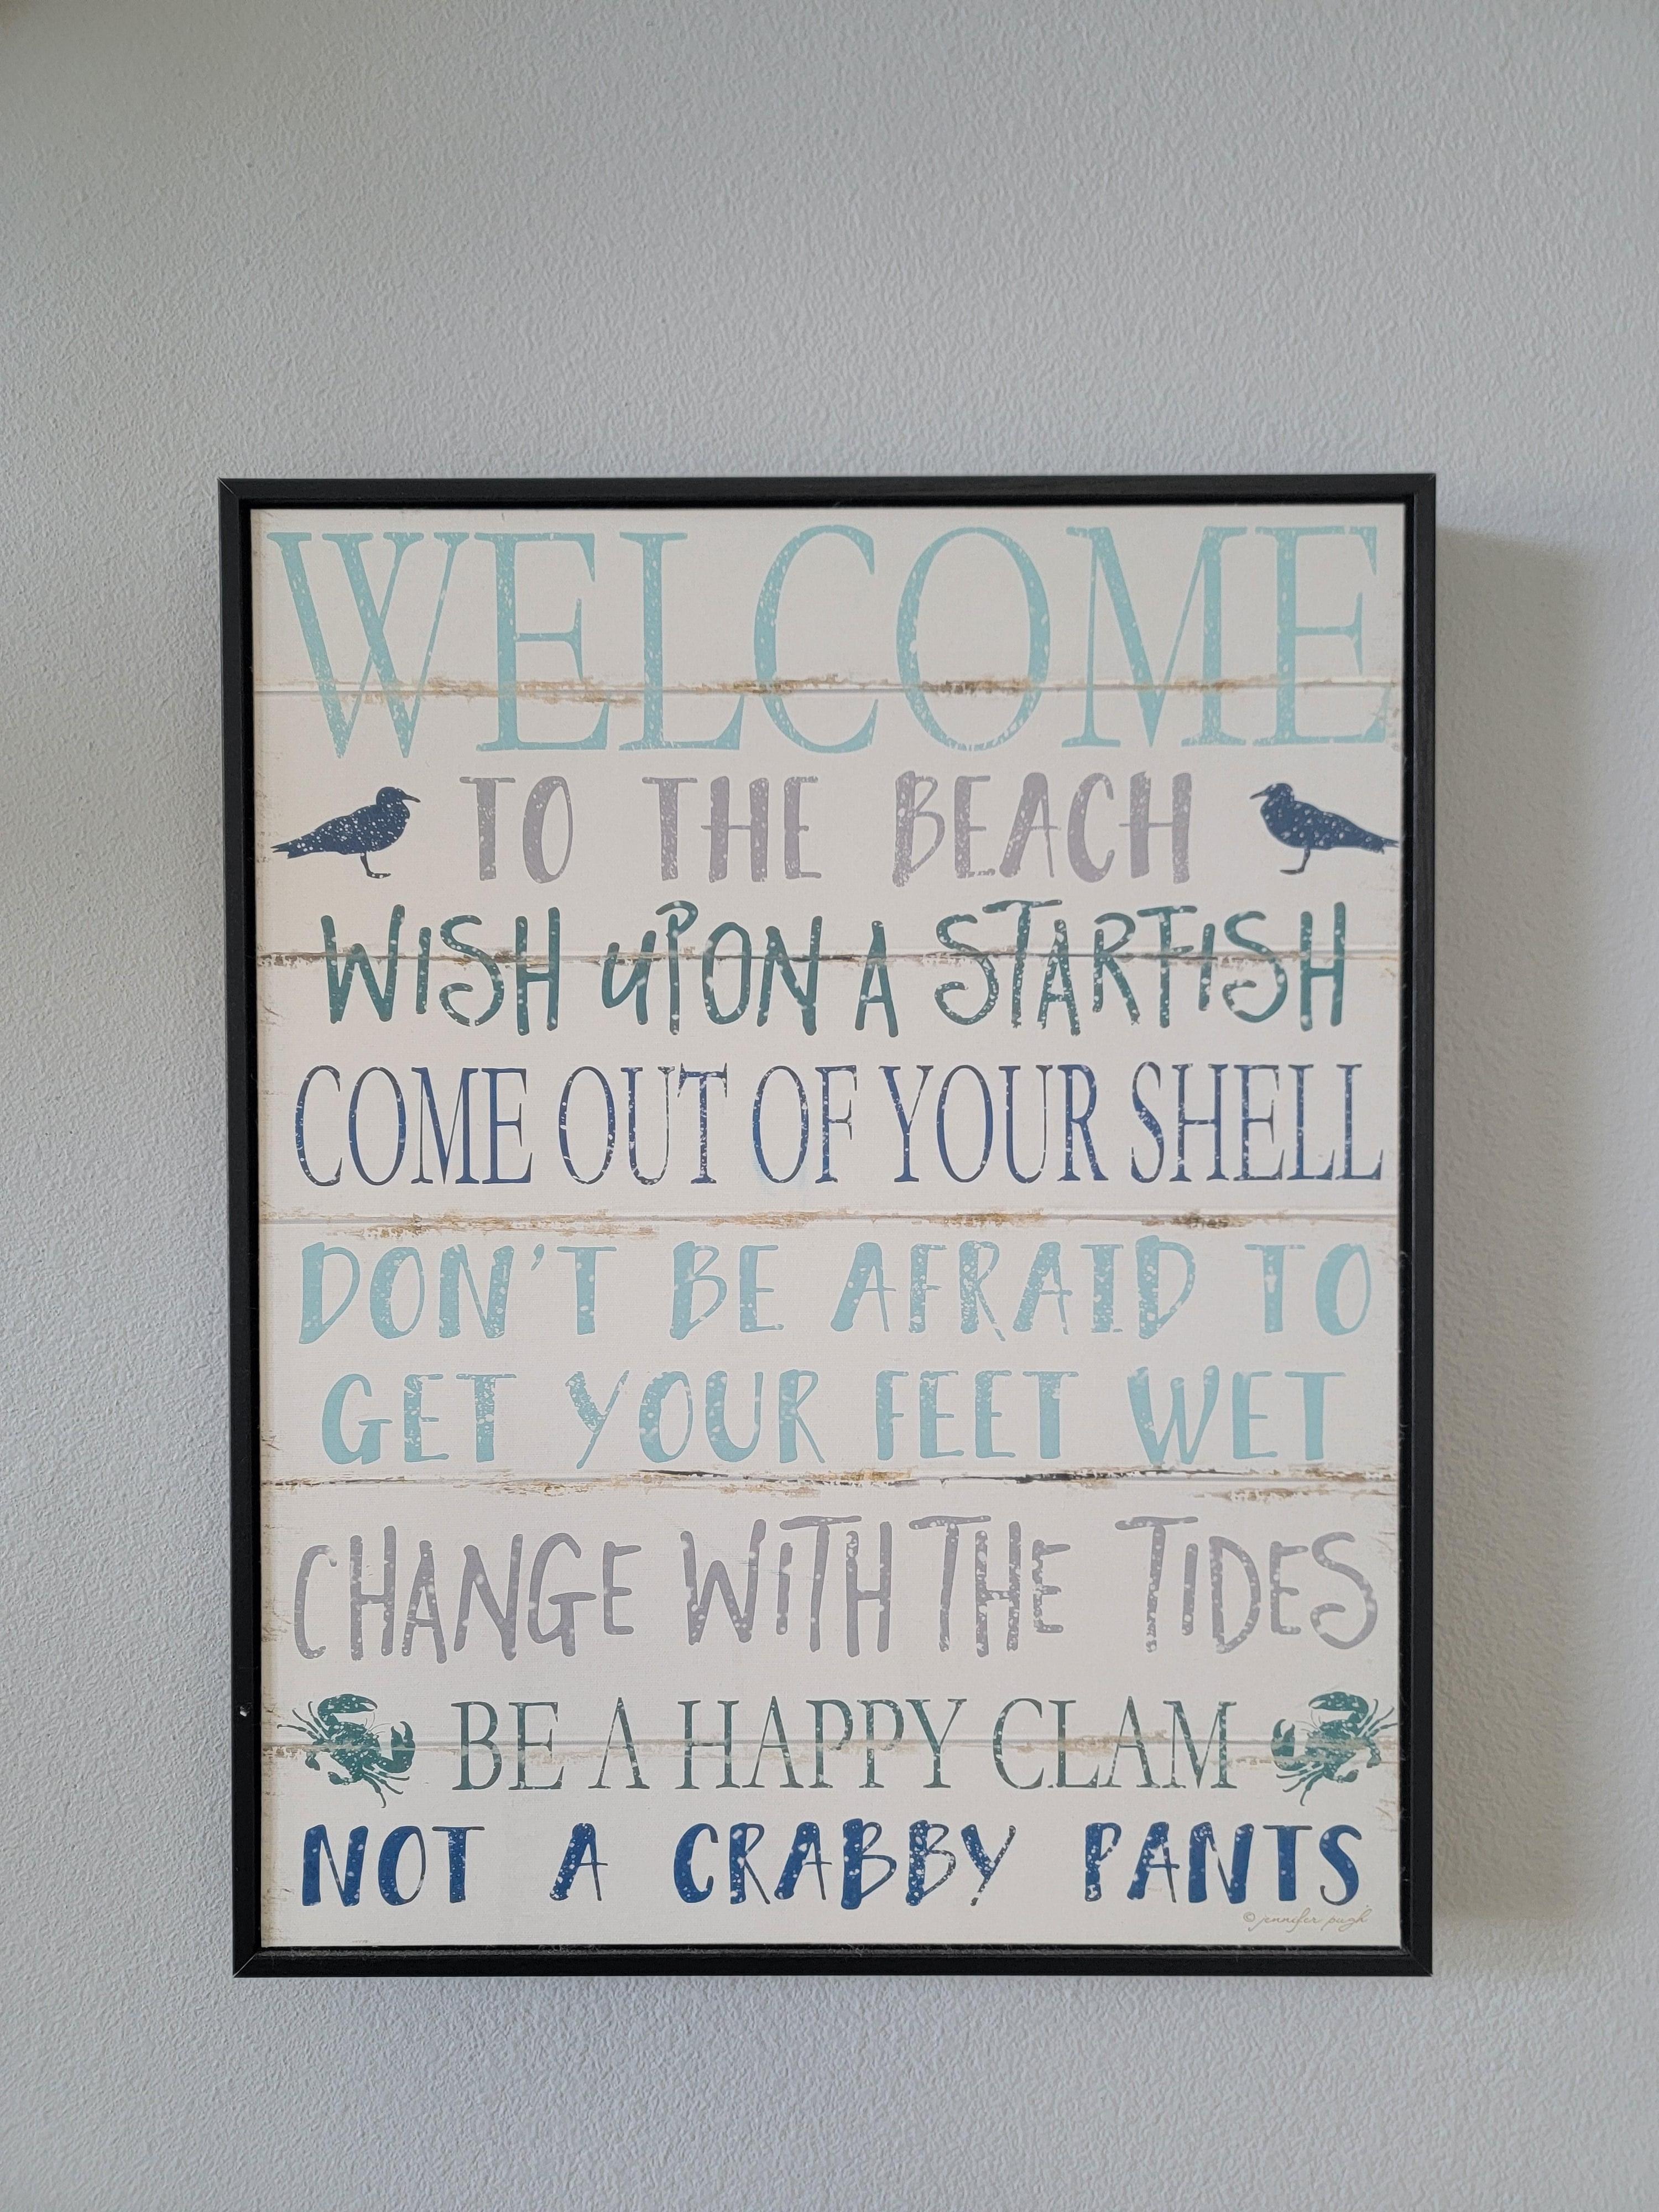 WELCOME
TO THE BEACH
WISH UPON A STARFISH
COME OUT OF YOUR SHELL
DON'T BE AFRAID TO
GET YOUR FEET WET
CHANGE WITH THE TIDES
BE A HAPPY CLAM
NOT A CRABBY PANTS
© jennifer pugh